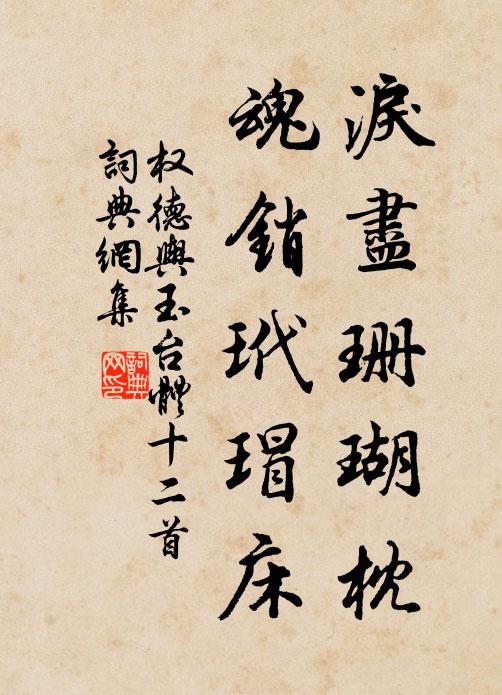 淚盡珊瑚枕
魂銷玳瑁床
权德輿玉台體十二首
詞典網集
詞典网印